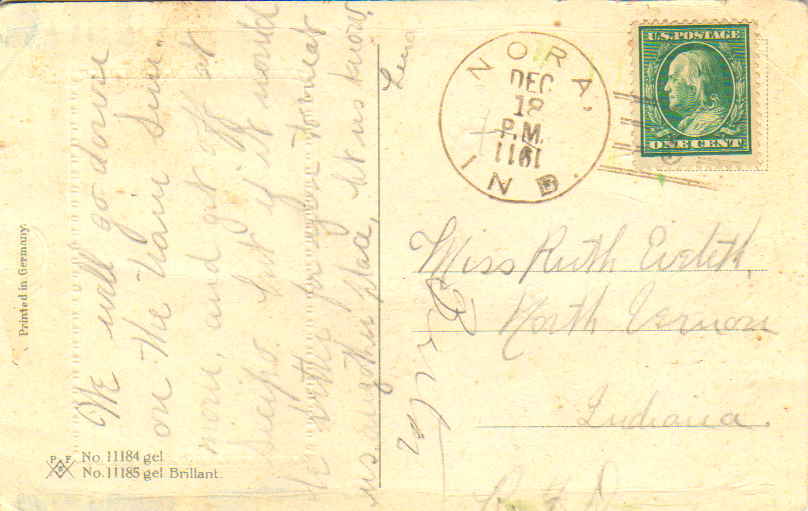 We will go down
on the train Sun.
morn, and get off at
Scipio. but if it would
be better for you to meet
us another place, let us know,
Lena
NORA,
DEC
18
P.M.
1911
IND.
U.S. POSTAGE
ONE CENT
Miss Ruth Eveleth,
North Vernon
Indiana.
R F D
Printed in Germany.
P F
No. 11184 gel
No. 11185 gel Brillant